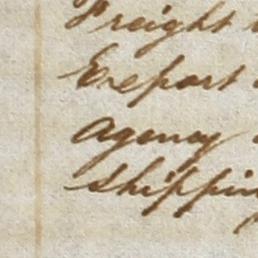 Freight
Export
Agency
Shippin